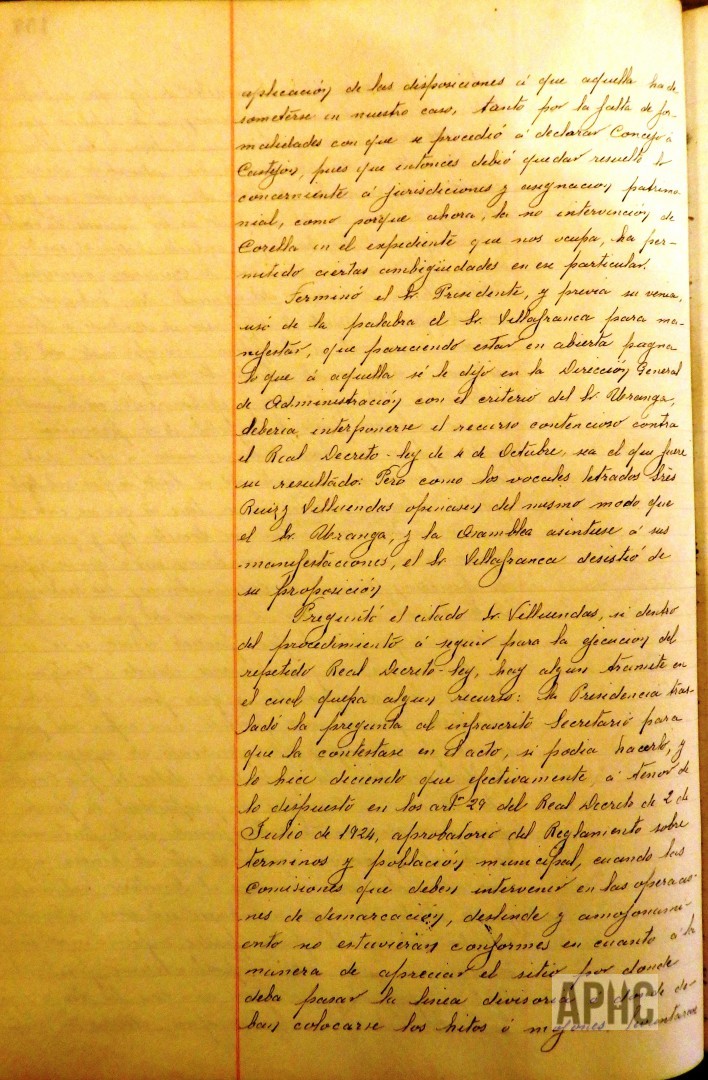 aplicación de las disposiciones á que aquella ha de
someterse en nuestro caso, tanto por la falta de for-
malidades con que se procedió á declarar Concejo á
Castejón, pues que entonces debió quedar resuelto lo
concerniente á jurisdiciones y asignación patrimo-
nial, como porque ahora, la no intervención de
Corella en el expediente que nos ocupa, ha per-
mitido ciertas ambigüedades en ese particular.
Terminó el Sr. Presidente, y previa su venia,
usó de la palabra el Sr. Villafranca para ma-
nifestar, que pareciendo estar en abierta pugna
lo que á aquella sé le dijo en la Dirección General
de Administración con el criterio del Sr. Uranga,
deberia interponerse el recurso contencioso contra
el Real Decreto-ley de 4 de Octubre, sea el que fuere
su resultado: Pero como los vocales letrados Srés
Ruiz y Villuendas opinasen del mismo modo que
el Sr. Uranga, y la Asamblea asintiese á sus
manifestaciones, el Sr. Villafranca desistió de
su proposición
Preguntó el citado Sr. Villuendas, si dentro
del procedimiento á seguir para la ejecucion del
repetido Real Decreto-ley, hay algun tramite en
el cual quepa algun recurso: la Presidencia tras-
ladó la pregunta al infrascrito Secretario para
que la contestase en el acto, si podia hacerlo, y
lo hice diciendo que efectivamente, á tenor de
lo dispuesto en los artº 29 del Real Decreto de 2 de
Julio de 1924, aprobatorio del Reglamento sobre
terminos y población municipal, cuando las
Comisiones que deben intervenir en las operacio-
nes de demarcación, deslinde y amojonami-
ento no estuvieran conformes en cuanto á la
manera de apreciar el sitio por donde
deba pasar la linea divisoria ó donde de-
ban colocarse los hitos ó mojones, levantaran
APHC